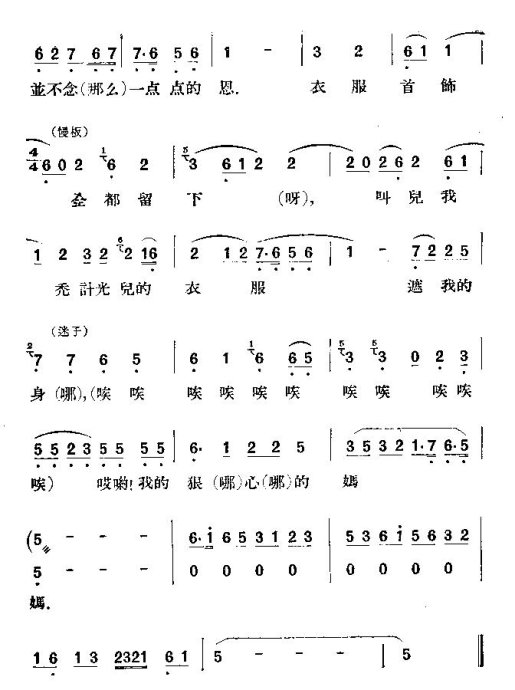 6 2 7 6 7 | 7·6 5 6 | 1 - | 3 2 | 6 1 1 |
並不念(那么)一点点的恩. 衣服首飾
(慢板)
4/4 6 0 2 1 6 2 | 5 3 6 1 2 2 | 2 0 2 6 2 6 1 |
全都留下(呀), 叫兒我
1 2 3 2 6 2 1 6 | 2 1 2 7·6 5 6 | 1 - 7 2 2 5 |
秃計光兒的衣服 遮我的
(迷子)
2 7 7 6 5 | 6 1 1 6 6 5 | 5 3 5 3 0 2 3 |
身(哪),(唉唉唉唉唉唉唉唉唉唉
5 5 2 3 5 5 5 5 | 6· 1 2 2 5 | 3 5 3 2 1·7 6·5 |
唉) 哎喲!我的狠(哪)心(哪)的媽
(5 - - - | 6·1 6 5 3 1 2 3 | 5 3 6 1 5 6 3 2 |
5 - - - | 0 0 0 0 | 0 0 0 0 |
媽.
1 6 1 3 2321 6 1 | 5 - - - | 5 ‖